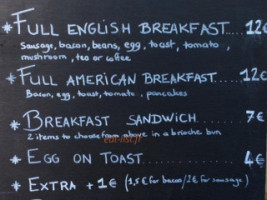 * FULL ENGLISH BREAKFAST.... 12€
Sausage, bacon, beans, egg, toast, tomato,
mushroom, tea or coffee
* FULL AMERICAN BREAKFAST.... 12€
Bacon, egg, toast, tomato, pancakes
* BREAKFAST SANDWICH ..... 7€
2 items to choose from above in a brioche bun
eat-list.fr
* EGG ON TOAST ........ 4€
* EXTRA + 1€ (1,5€ for bacon/2€ for sausage)